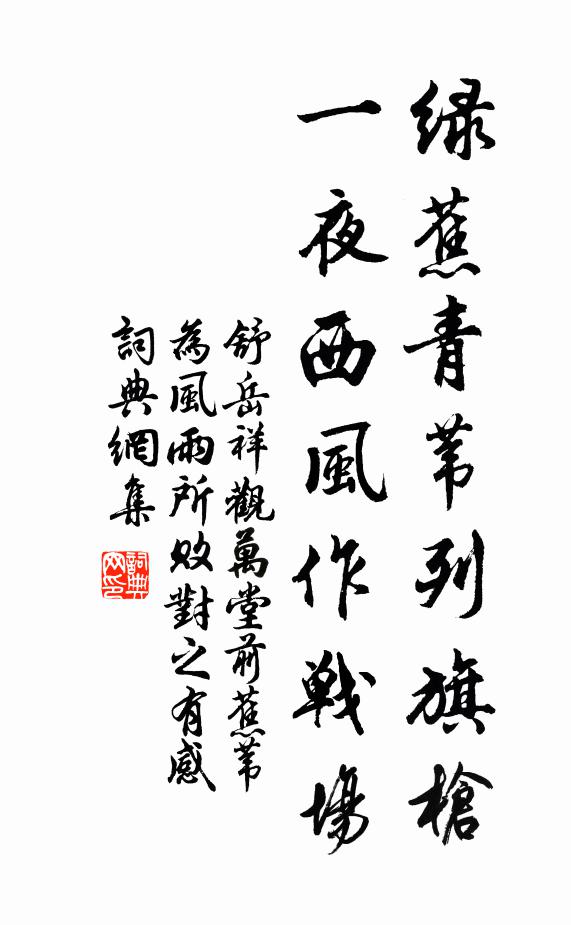 绿蕉青苇列旗槍
一夜西風作戦場
舒岳祥觀萬堂前蕉苇
為風雨所败對之有感
詞典網集
詞典网印